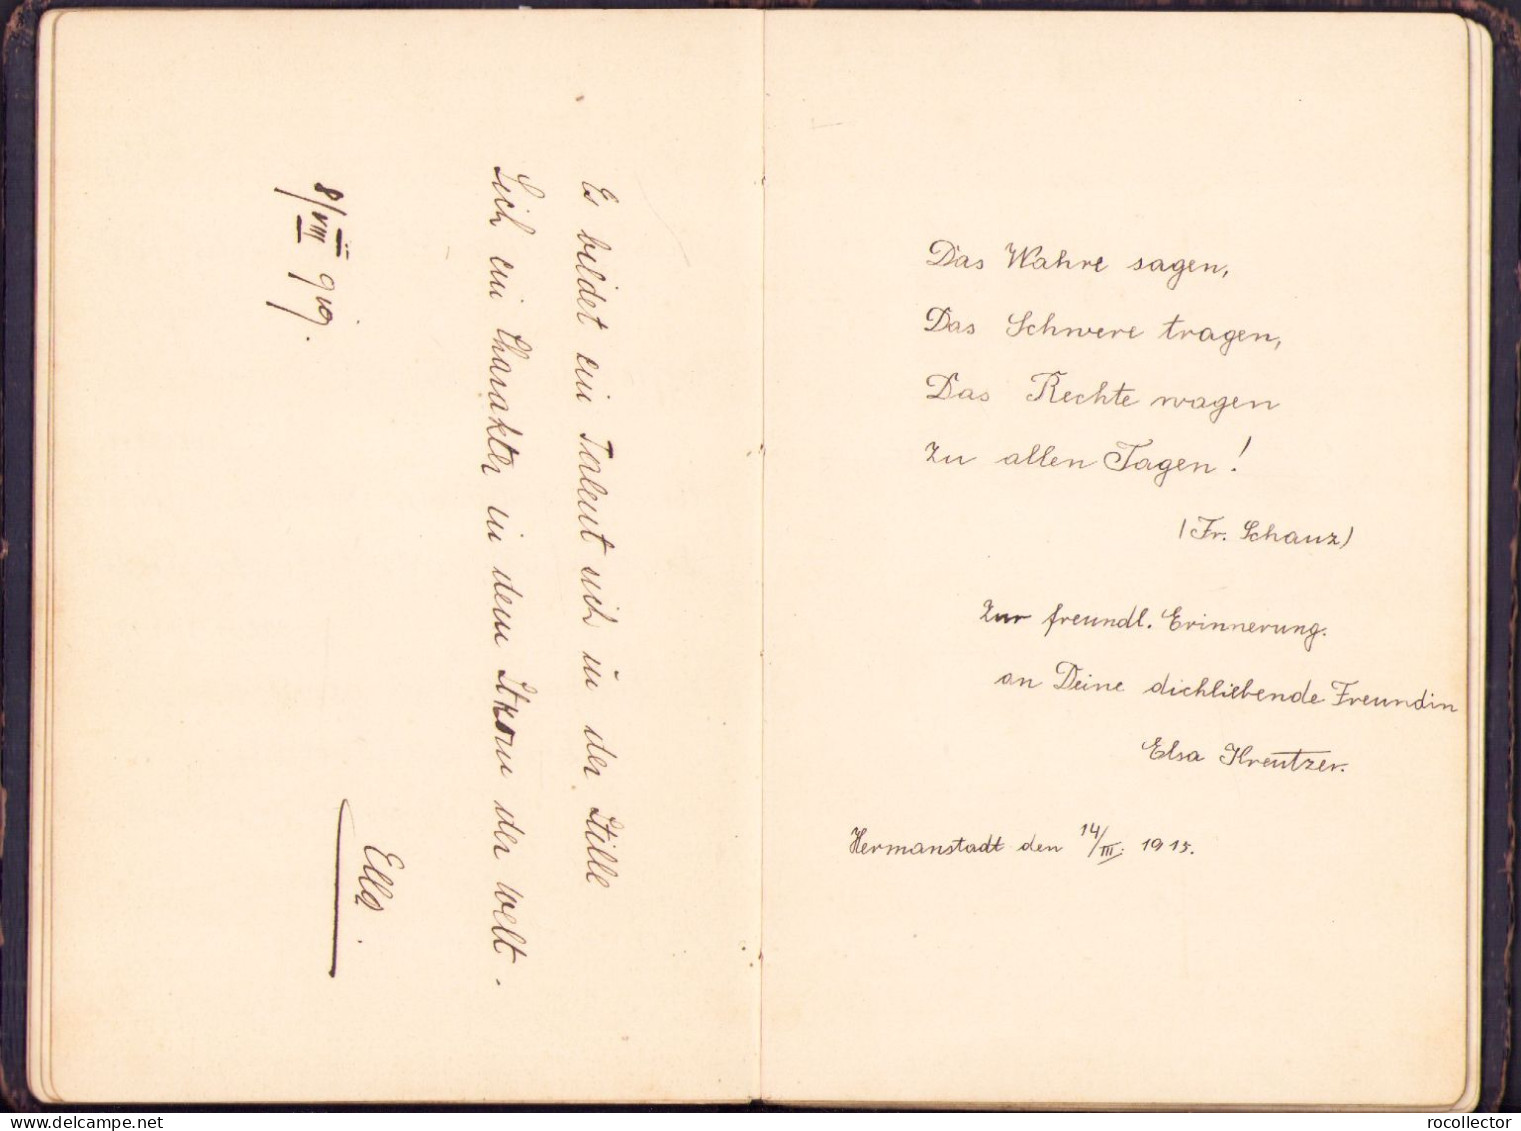 Es bildet ein Talent sich in der Stille
Sich ein Charakter in dem Strom der Welt.
8/VIII 919.
Ella.
Das Wahre sagen,
Das Schwere tragen,
Das Rechte wagen
Zu allen Tagen!
(Fr. Schanz)
Zur freundl. Erinnerung.
an Deine dichliebende Freundin
Elsa Kreutzer.
Hermanstadt den 14/III. 1915.
rocollector